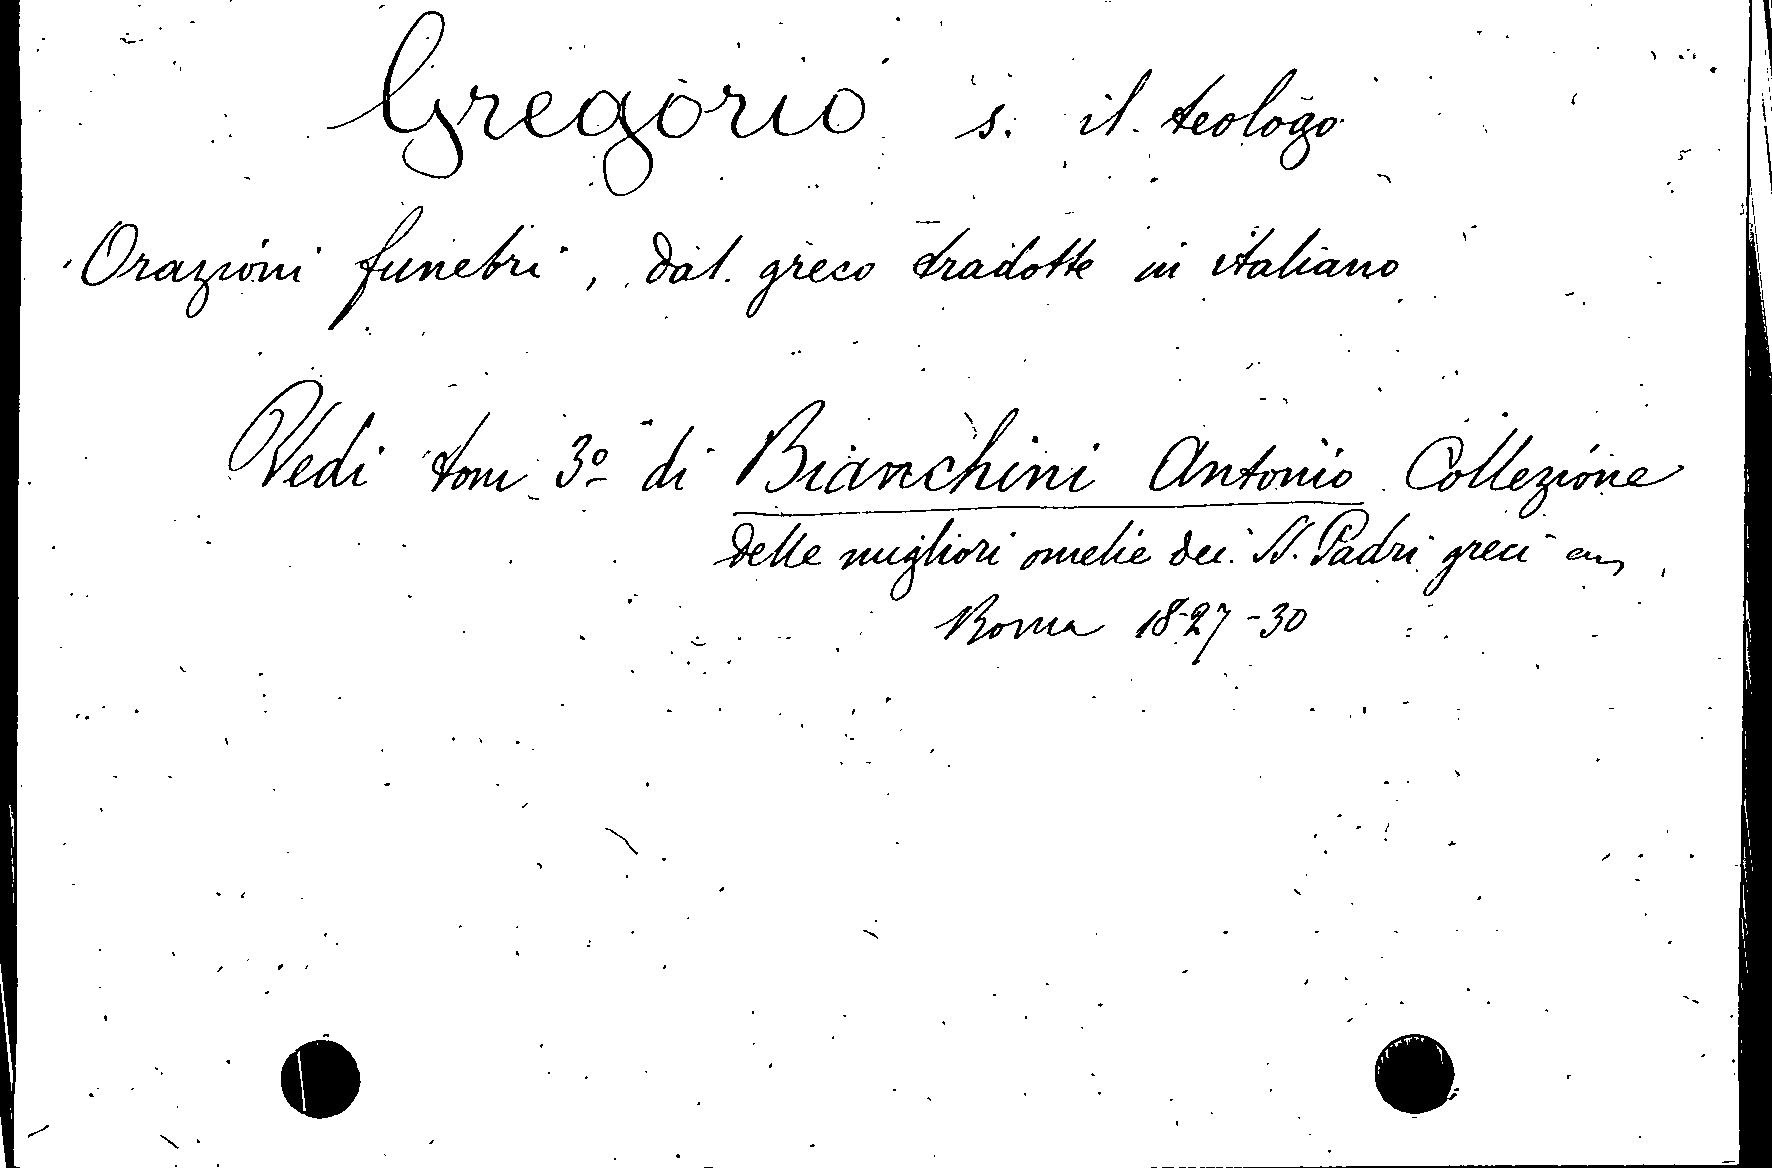 Gregorio s. il teologo
Orazioni funebri, dal greco tradotte in italiano
Vedi tom 3º di Bianchini Antonio Collezione
delle migliori omelie dei SS. Padri greci
Roma 1827-30